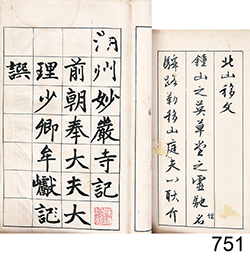 北山移文
鍾山之英草堂之靈馳名
驛路勒移山庭夫以耿介
湖州妙嚴寺記
前朝奉大夫大
理少卿牟巘記
譔
751